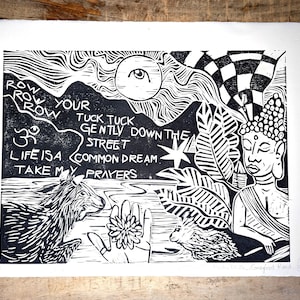 ROW
ROW
ROW YOUR
TUCK TUCK
GENTLY DOWN THE
STREET
ॐ
LIFE IS A COMMON DREAM
TAKE MY PRAYERS